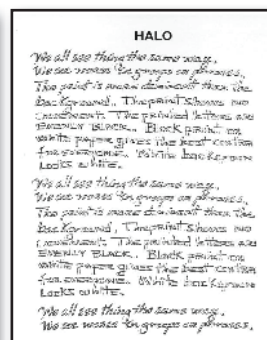 HALO
We all see things the same way.
We see words in groups or phrases.
The print is more dominant than the
background. The print shows no
movement. The printed letters are
EVENLY BLACK. Black print on
white paper gives the best contrast
for everyone. White background
looks white.
We all see things the same way.
We see words in groups or phrases.
The print is more dominant than the
background. The print shows no
movement. The printed letters are
EVENLY BLACK. Black print on
white paper gives the best contrast
for everyone. White background
looks white.
We all see things the same way.
We see words in groups or phrases.